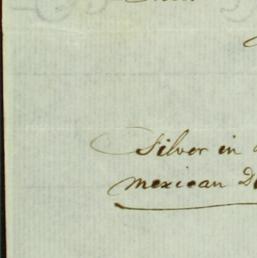 Silver in
mexican D